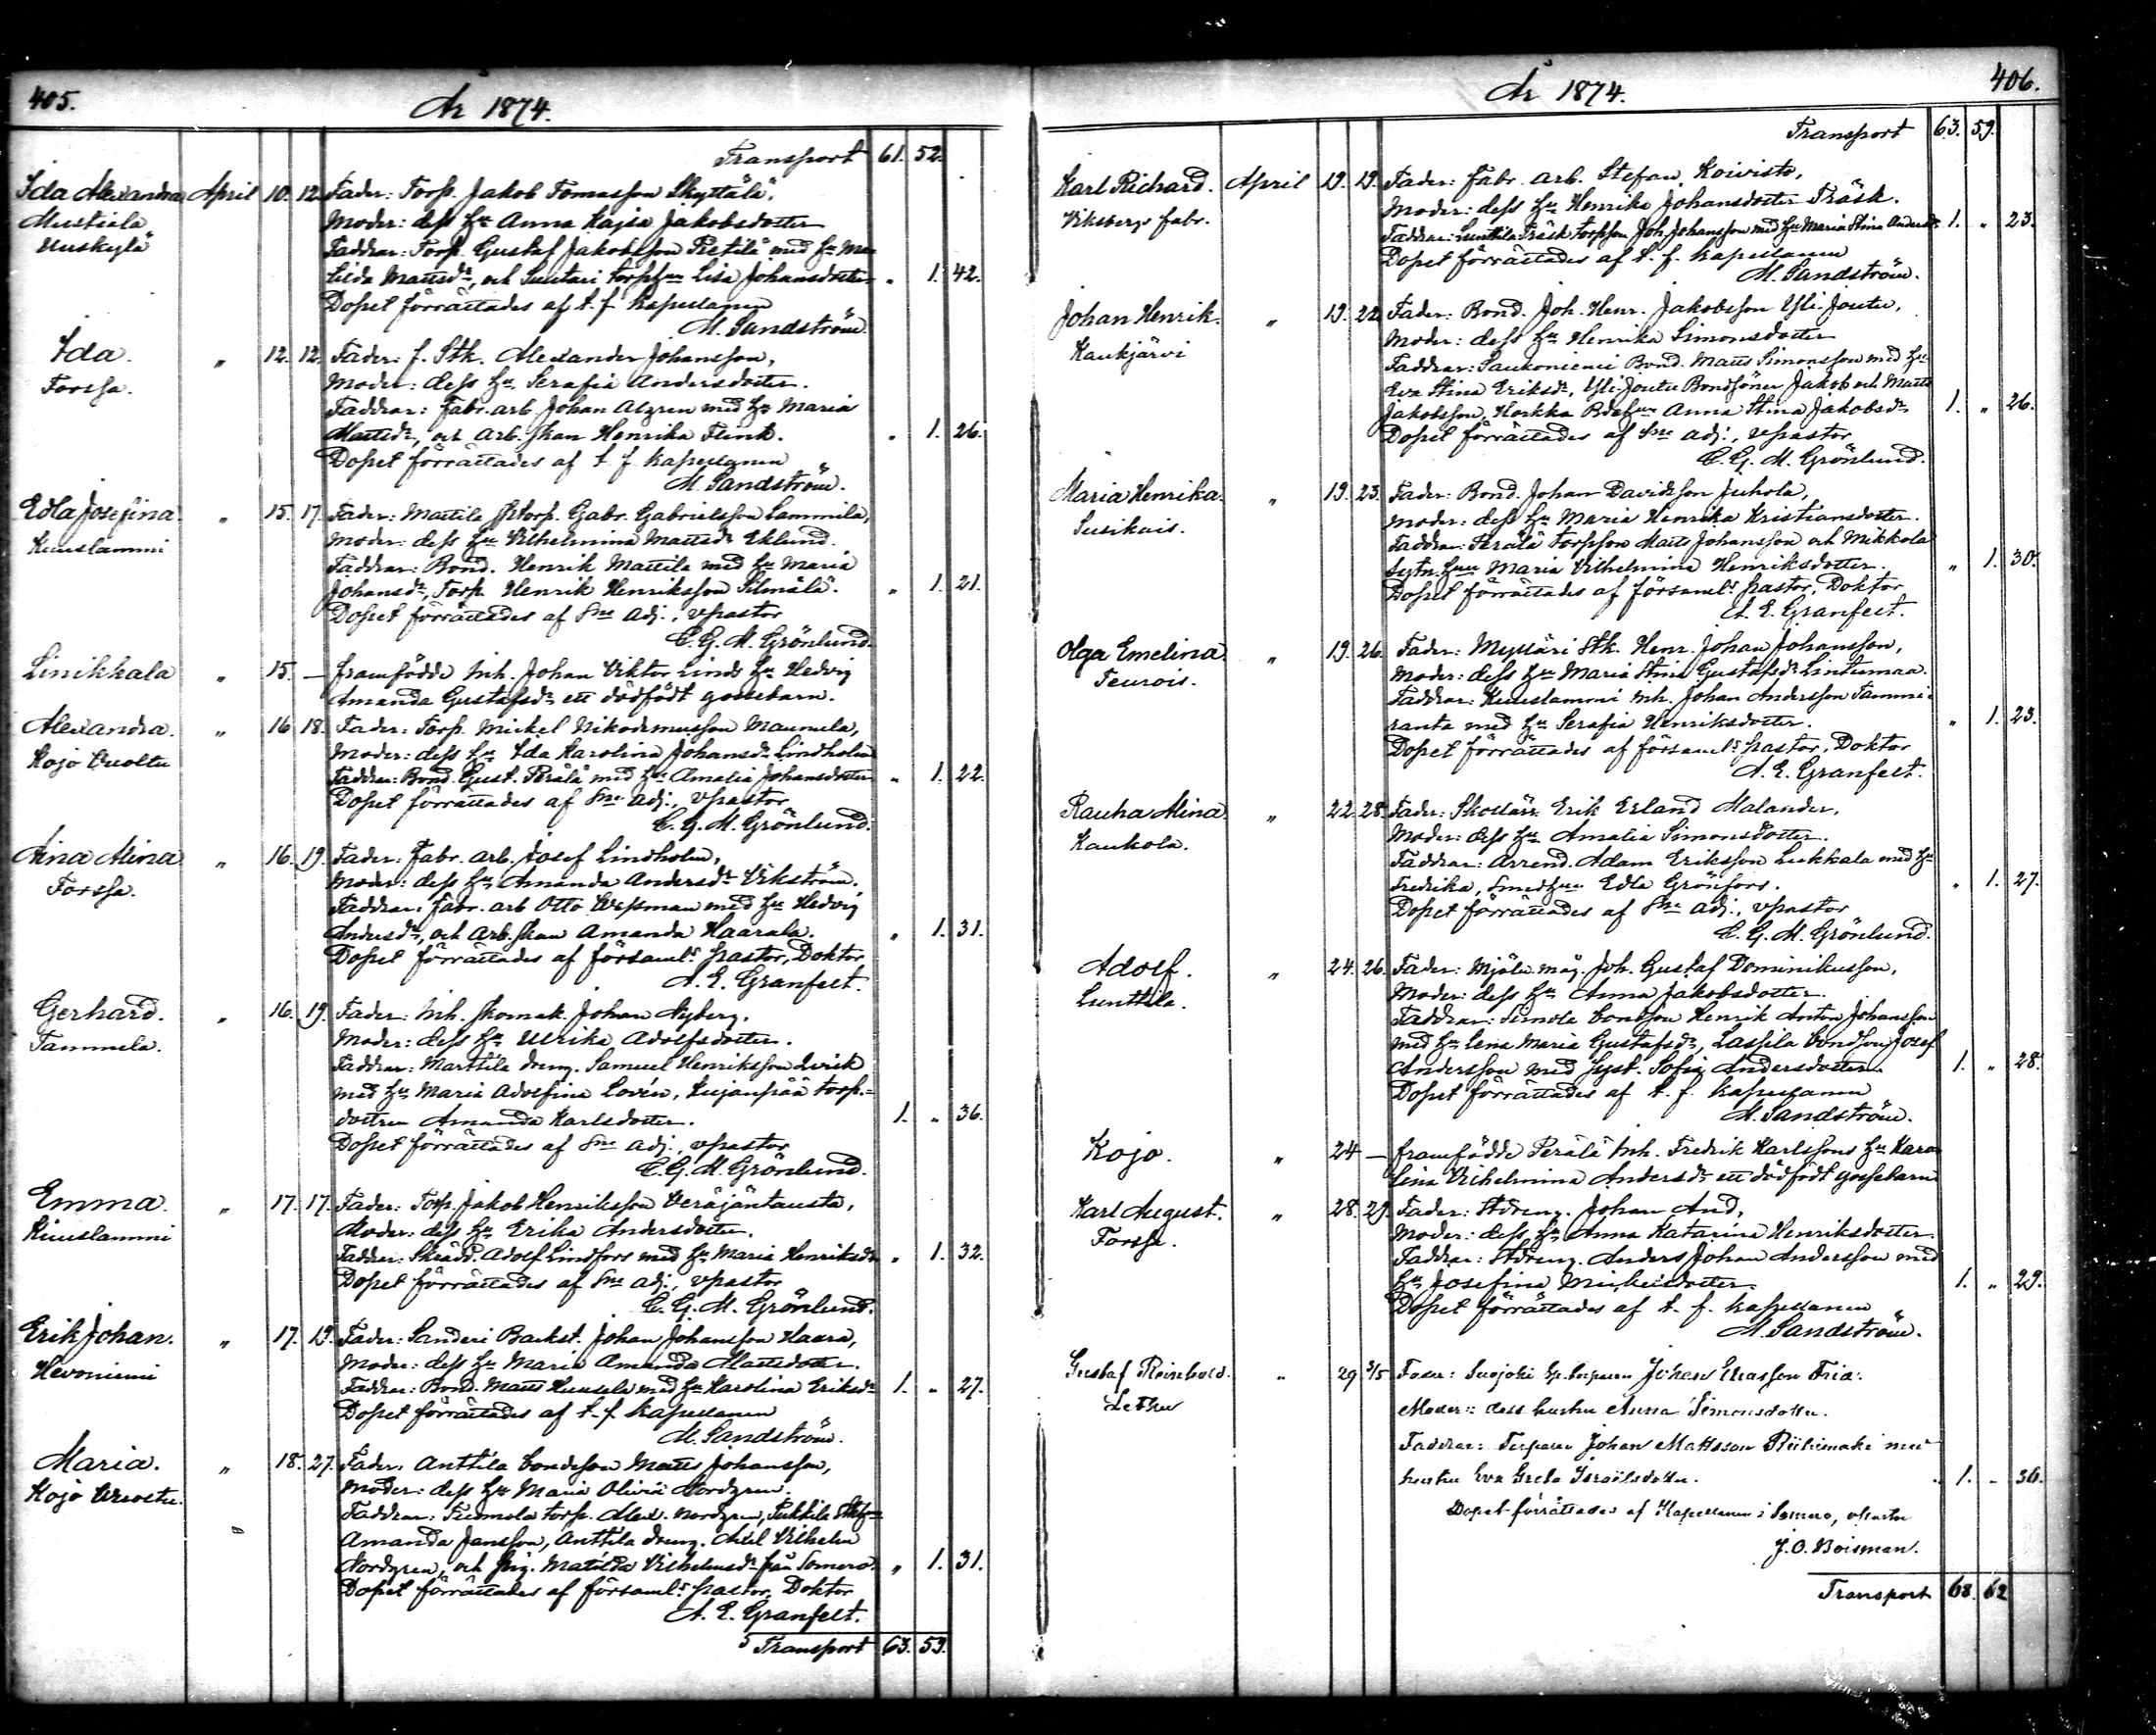 405.
År 1874.
Transport 61. 52.
Ida Alexandra April 10. 12. Fader: Torp. Jakob Tomasson Skyttälä,
Mustiala Moder: dess Hu Anna Kajsa Jakobsdotter
Huskylä Faddrar: Torp. Gustaf Jakobsson Pietilä med Hu Ma-
tilda Mattsdr, och Suutari torphun Lisa Johansdotter. " 1. 42.
Dopet förrättades af t. f. kapellanen
M. Sandström.
Ida. " 12. 12. Fader: f. Stk. Alexander Johansson,
Forssa. Moder: dess Hu Serafia Andersdotter.
Faddrar: Fabr. arb. Johan Algren med Hu Maria
Mattsdr, och Arb. skan Henrika Flink. " 1. 26.
Dopet förrättades af t. f. kapellanen
M. Sandström.
Edla Josefina " 15. 17. Fader: Mattila Torp. Gabr. Gabrielsson Lammila,
Kuuslammi Moder: dess Hu Vilhelmina Mattsdr Eklund.
Faddrar: Bond. Henrik Mattila med Hu Maria
Johansdr, Torp. Henrik Henriksson Silmälä. " 1. 21.
Dopet förrättades af Sne adj., vpastor
C. G. M. Grönlund.
Linikkala " 15. — framfödde Inh. Johan Viktor Linds Hu Hedvig
Amanda Gustafsdr ett dödfödt gossebarn.
Alexandra. " 16. 18. Fader: Torp. Mickel Nikodemusson Maunula,
Kojo Vuoltu Moder: dess Hu Ida Karolina Johansdr Lindholm
Faddrar: Bond. Gust. Perälä med Hu Amalia Johansdotter " 1. 22.
Dopet förrättades af Sne adj., vpastor
C. G. M. Grönlund.
Aina Mina " 16. 19. Fader: Fabr. arb. Josef Lindholm,
Forssa. Moder: dess Hu Amanda Andersdr Vikström.
Faddrar: Fabr. arb Otto Wessman med Hu Hedvig
Andersdr, och Arb. skan Amanda Haarala. " 1. 31.
Dopet förrättades af församls pastor, Doktor
A. E. Granfelt.
Gerhard. " 16. 19. Fader: Inh. skomak. Johan Nyberg,
Tammela. Moder: dess Hu Ulrika Adolfsdotter.
Faddrar: Marttila dreng. Samuel Henriksson Lerik
med Hu Maria Adolfina Lovén, Kujanpää torp.=
dottren Amanda Karlsdotter. 1. " 36.
Dopet förrättades af Sne adj., vpastor
C. G. M. Grönlund.
Emma. " 17. 17. Fader: Torp. Jakob Henriksson Veräjäntausta,
Kuuslammi Moder: dess Hu Erika Andersdotter.
Faddrar: Skrädd. Adolf Lindfors med Hu Maria Henriksdr " 1. 32.
Dopet förrättades af Sne adj., vpastor
C. G. M. Grönlund.
Erik Johan. " 17. 19. Fader: Sanderi Backst. Johan Johansson Haara,
Hevoniemi Moder: dess Hu Maria Amanda Mattsdotter.
Faddrar: Bond. Matts Huusela med Hu Karolina Eriksdr 1. " 27.
Dopet förrättades af t. f. kapellanen
M. Sandström.
Maria. " 18. 27. Fader: Anttila bondeson Matts Johansson,
Kojo Moder: dess Hu Maria Olivia Nordgren.
Faddrar: torp. Alex. Nordgren,
Amanda Jansson, Anttila dreng. Axel Vilhelm
Nordgren, och Pig. Matilda Vilhelmsdr från Somero. " 1. 31.
Dopet förrättades af församls pastor, Doktor
A. E. Granfelt.
Transport 63. 59.
406.
År 1874.
Transport 63. 59.
Karl Richard. April 19. 19. Fader: Fabr. arb. Stefan Koivisto,
Viksbergs fabr. Moder: dess Hu Henrika Johansdotter Träsk.
Faddrar: Lunttila Träsk torpson Joh. Johansson med Hu Maria Stina Andersdr 1. " 23.
Dopet förrättades af t. f. kapellanen
M. Sandström.
Johan Henrik. " 19. 22. Fader: Bond. Joh. Henr. Jakobsson Yli-Joutu,
Kaukjärvi Moder: dess Hu Henrika Simonsdotter
Faddrar: Saukoniemi Bond. Matts Simonsson med Hu
Eva Stina Eriksdr, Yli-Joutu Bondsöner Jakob och Matts
Jakobsson, Horkka Bdehun Anna Stina Jakobsdr 1. " 26.
Dopet förrättades af Sne adj., vpastor
C. G. M. Grönlund.
Maria Henrika. " 19. 23. Fader: Bond. Johan Davidsson Juhola,
Susikais. Moder: dess Hu Maria Henrika Kristiansdotter.
Faddrar: Perälä torpson Matts Johansson och Mikkola
Sytn. Hun Maria Vilhelmina Henriksdotter. " 1. 30.
Dopet förrättades af församls pastor, Doktor
A. E. Granfelt.
Olga Emelina. " 19. 26. Fader: Mylläri Stk. Henr. Johan Johansson,
Teurois. Moder: dess Hu Maria Stina Gustafsdr Lintumaa.
Faddrar: Kuuslammi Inh. Johan Andersson Tammi-
ranta med Hu Serafia Henriksdotter. " 1. 23.
Dopet förrättades af församls pastor, Doktor
A. E. Granfelt.
Rauha Mina " 22. 28. Fader: Skollär. Erik Erland Malander,
Kaukola. Moder: dess Hu Amalia Simonsdotter.
Faddrar: Arrend. Adam Eriksson Lukkala med Hu
Fredrika, Smedhun Edla Grönfors. " 1. 27.
Dopet förrättades af Sne adj., vpastor
C. G. M. Grönlund.
Adolf. " 24. 26. Fader: Mjöln. måg. Joh. Gustaf Dominikusson,
Lunttila. Moder: dess Hu Anna Jakobsdotter.
Faddrar: Simola bondson Henrik Anton Johansson
med Hu Lena Maria Gustafsdr, Lassila bondson Josef
Andersson med Syst. Sofia Andersdotter. 1. " 28.
Dopet förrättades af t. f. kapellanen
M. Sandström.
Kojo. " 24 — framfödde Perälä Inh. Fredrik Karlssons Hu Karo-
lina Vilhelmina Andersdr ett dödfödt gossebarn
Karl August. " 28. 29. Fader: Stdreng. Johan And,
Forssa. Moder: dess Hu Anna Katarina Henriksdotter.
Faddrar: Stdreng. Anders Johan Andersson med
Hu Josefina Mickelsdotter. 1. " 29.
Dopet förrättades af t. f. kapellanen
M. Sandström.
Gustaf Reinhold. " 29 3/5 Fader: Suojoki Johan Eliasson Fria.
Letku Moder: dess hustru Anna Simonsdotter.
Faddrar: Torparen Johan Mattsson Riihimäki med
hustru Eva Greta Israelsdotter. " 1. - 36.
Dopet förrättades af Kapellanen i Somero, vpastor
J. O. Boisman.
Transport 68. 62